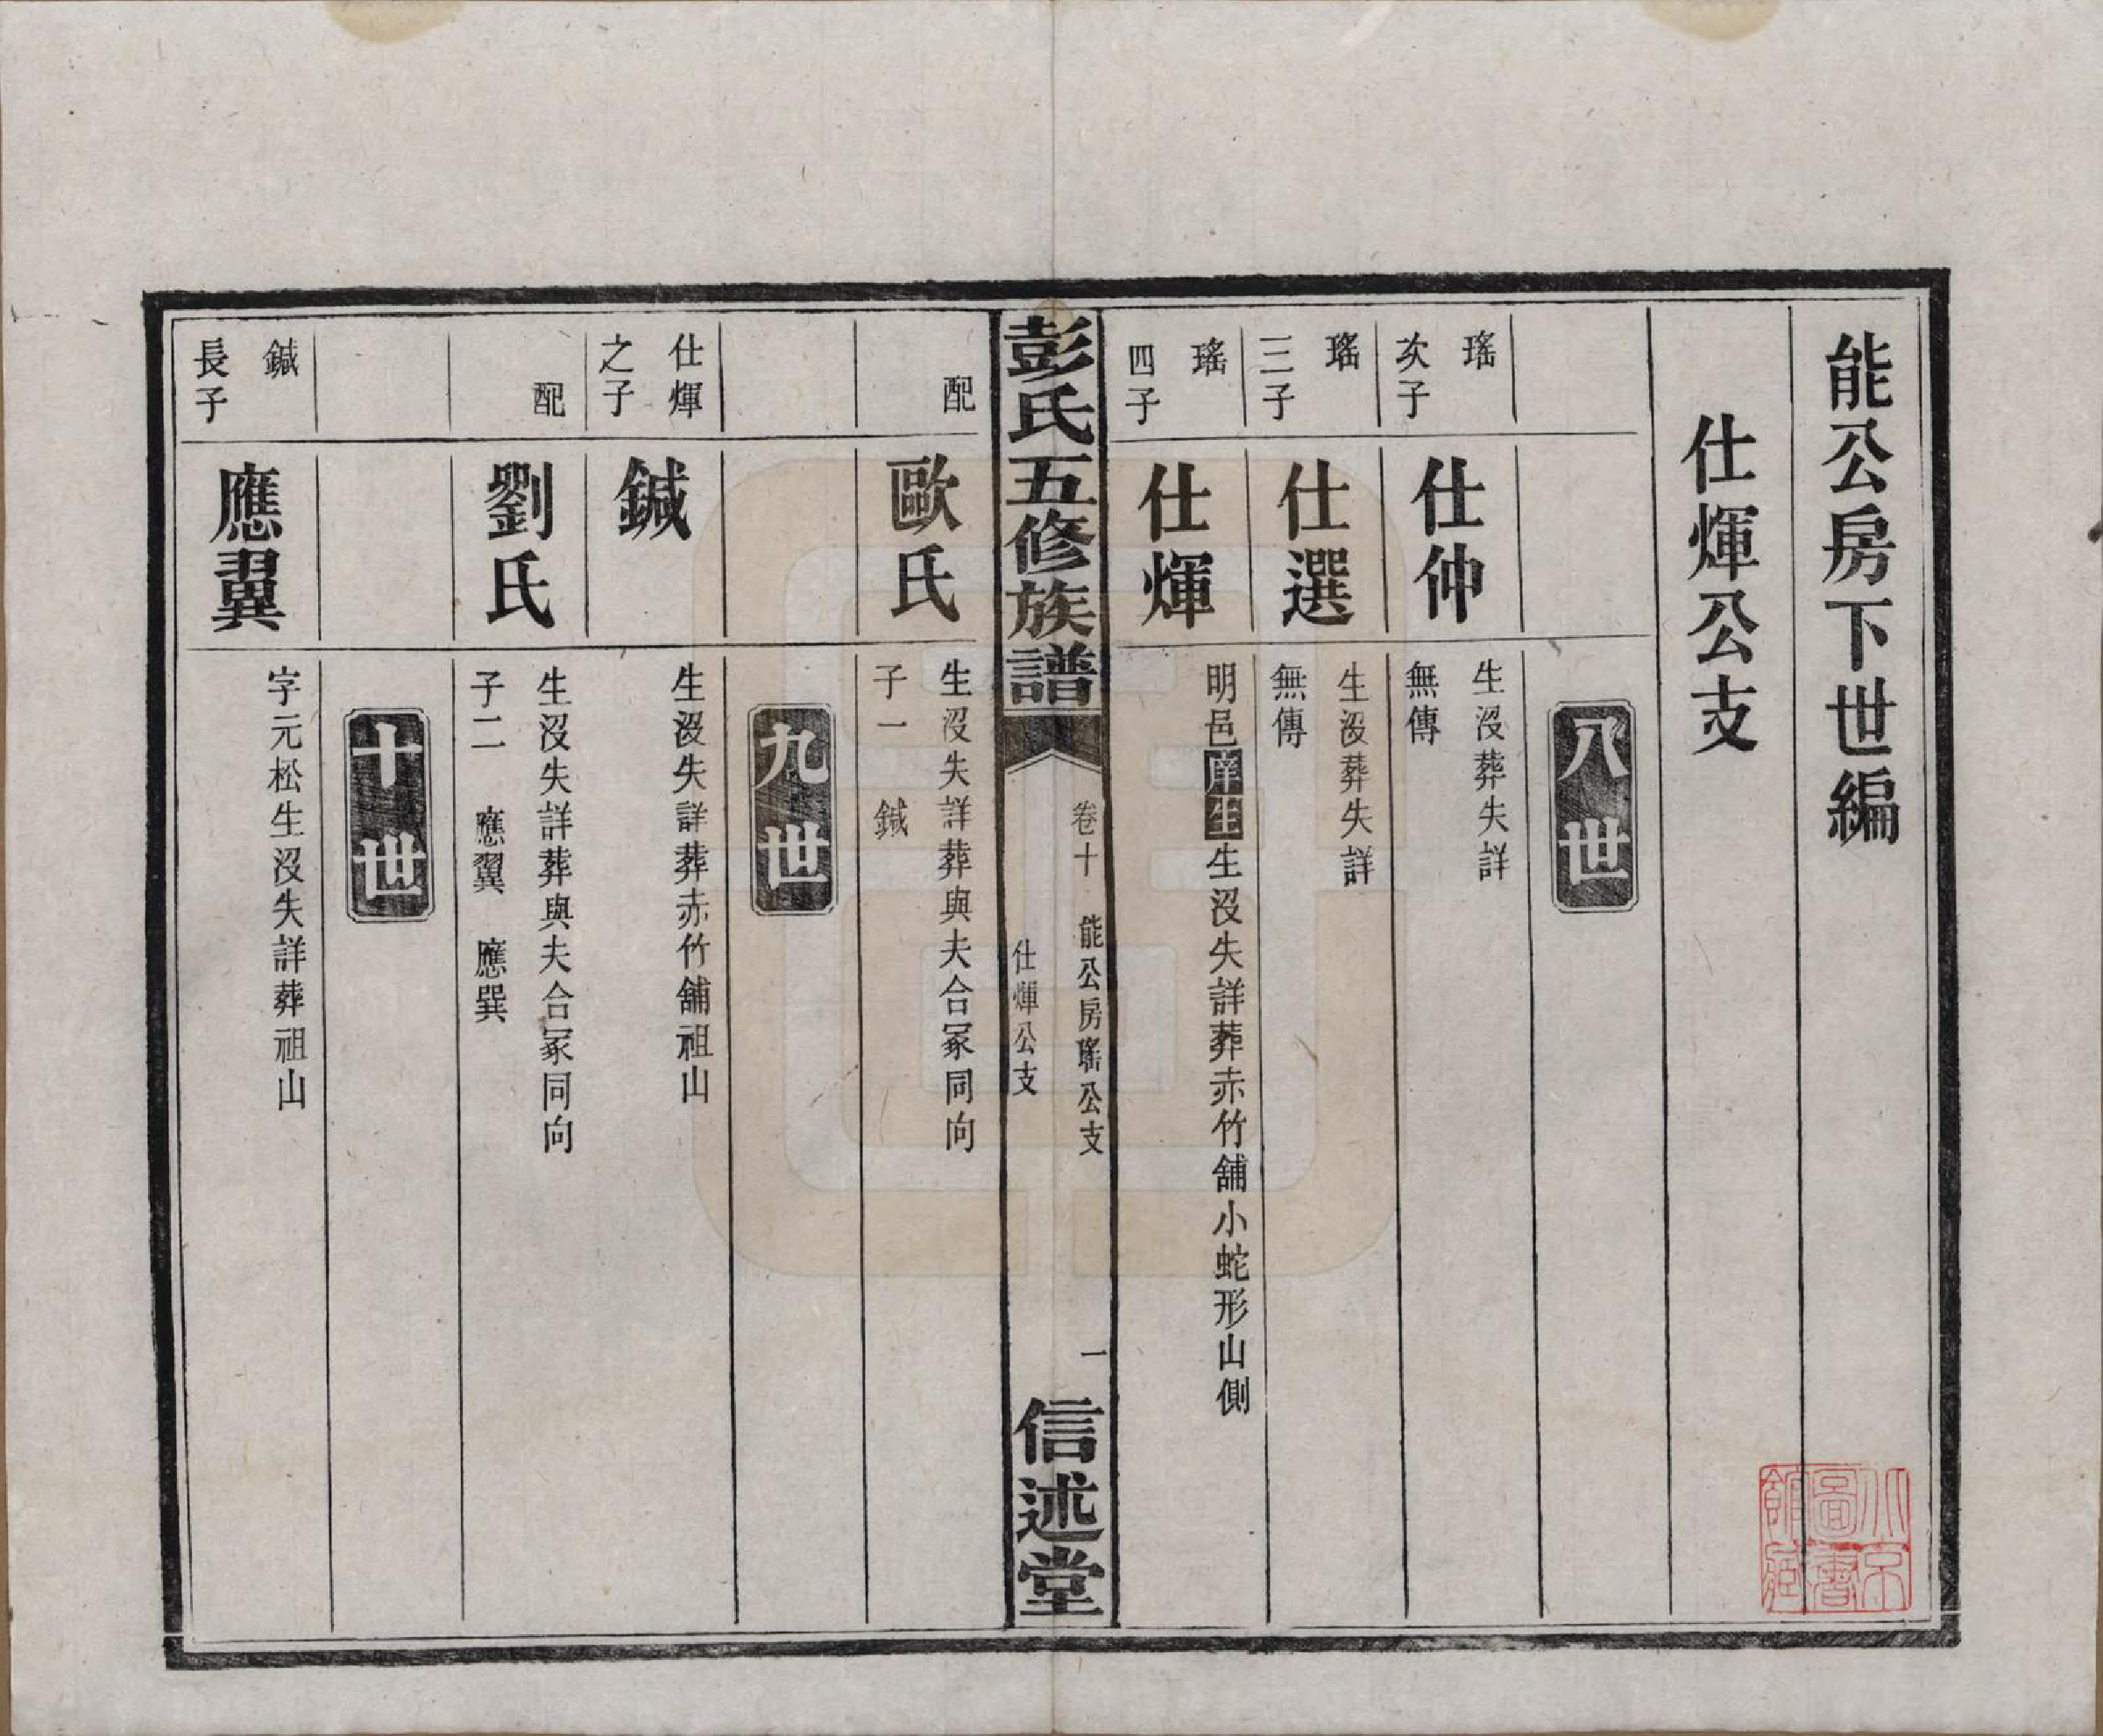 能公房下世編
仕煇公支
八世
瑤
次子
仕仲
生沒葬失詳
無傳
瑤
三子
仕選
生沒葬失詳
無傳
瑤
四子
仕煇
明邑庠生生沒失詳葬赤竹舖小蛇形山側
彭氏五修族譜
卷十 能公房瑤公支
仕煇公支
一
信述堂
配
歐氏
生沒失詳葬與夫合冢同向
子一 鍼
九世
仕煇
之子
鍼
生沒失詳葬赤竹舖祖山
配
劉氏
生沒失詳葬與夫合冢同向
子二 應翼 應巽
十世
鍼
長子
應翼
字元松生沒失詳葬祖山
北京
圖書
館藏